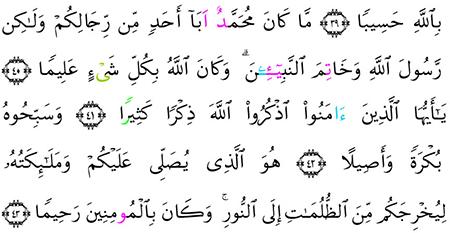 بِٱللَّهِ حَسِيبًا ﴿٣٩﴾ مَّا كَانَ مُحَمَّدٌ اَبَآ أَحَدٍ مِّن رِّجَالِكُمْ وَلَٰكِن
رَّسُولَ ٱللَّهِ وَخَاتِمَ ٱلنَّبِيٓـِٕينَ ۗ وَكَانَ ٱللَّهُ بِكُلِّ شَىْءٍ عَلِيمًا ﴿٤٠﴾
يَٰٓأَيُّهَا ٱلَّذِينَ ءَامَنُوا۟ ٱذْكُرُوا۟ ٱللَّهَ ذِكْرًا كَثِيرًا ﴿٤١﴾ وَسَبِّحُوهُ
بُكْرَةً وَأَصِيلًا ﴿٤٢﴾ هُوَ ٱلَّذِى يُصَلِّى عَلَيْكُمْ وَمَلَٰٓئِكَتُهُۥ
لِيُخْرِجَكُم مِّنَ ٱلظُّلُمَٰتِ إِلَى ٱلنُّورِ ۚ وَكَانَ بِٱلْمُومِنِينَ رَحِيمًا ﴿٤٣﴾